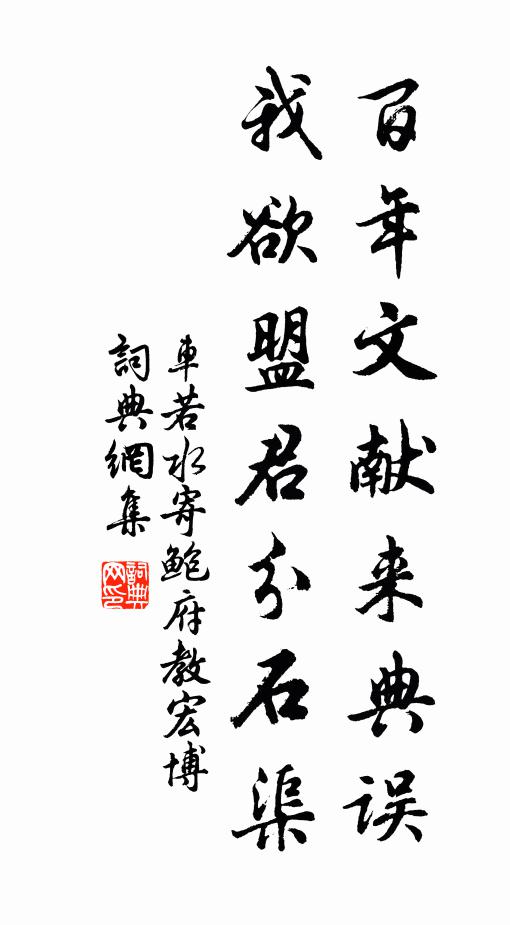 百年文献来典误
我欲盟君分石渠
車若水寄鲍府教宏博
詞典網集
詞典网印